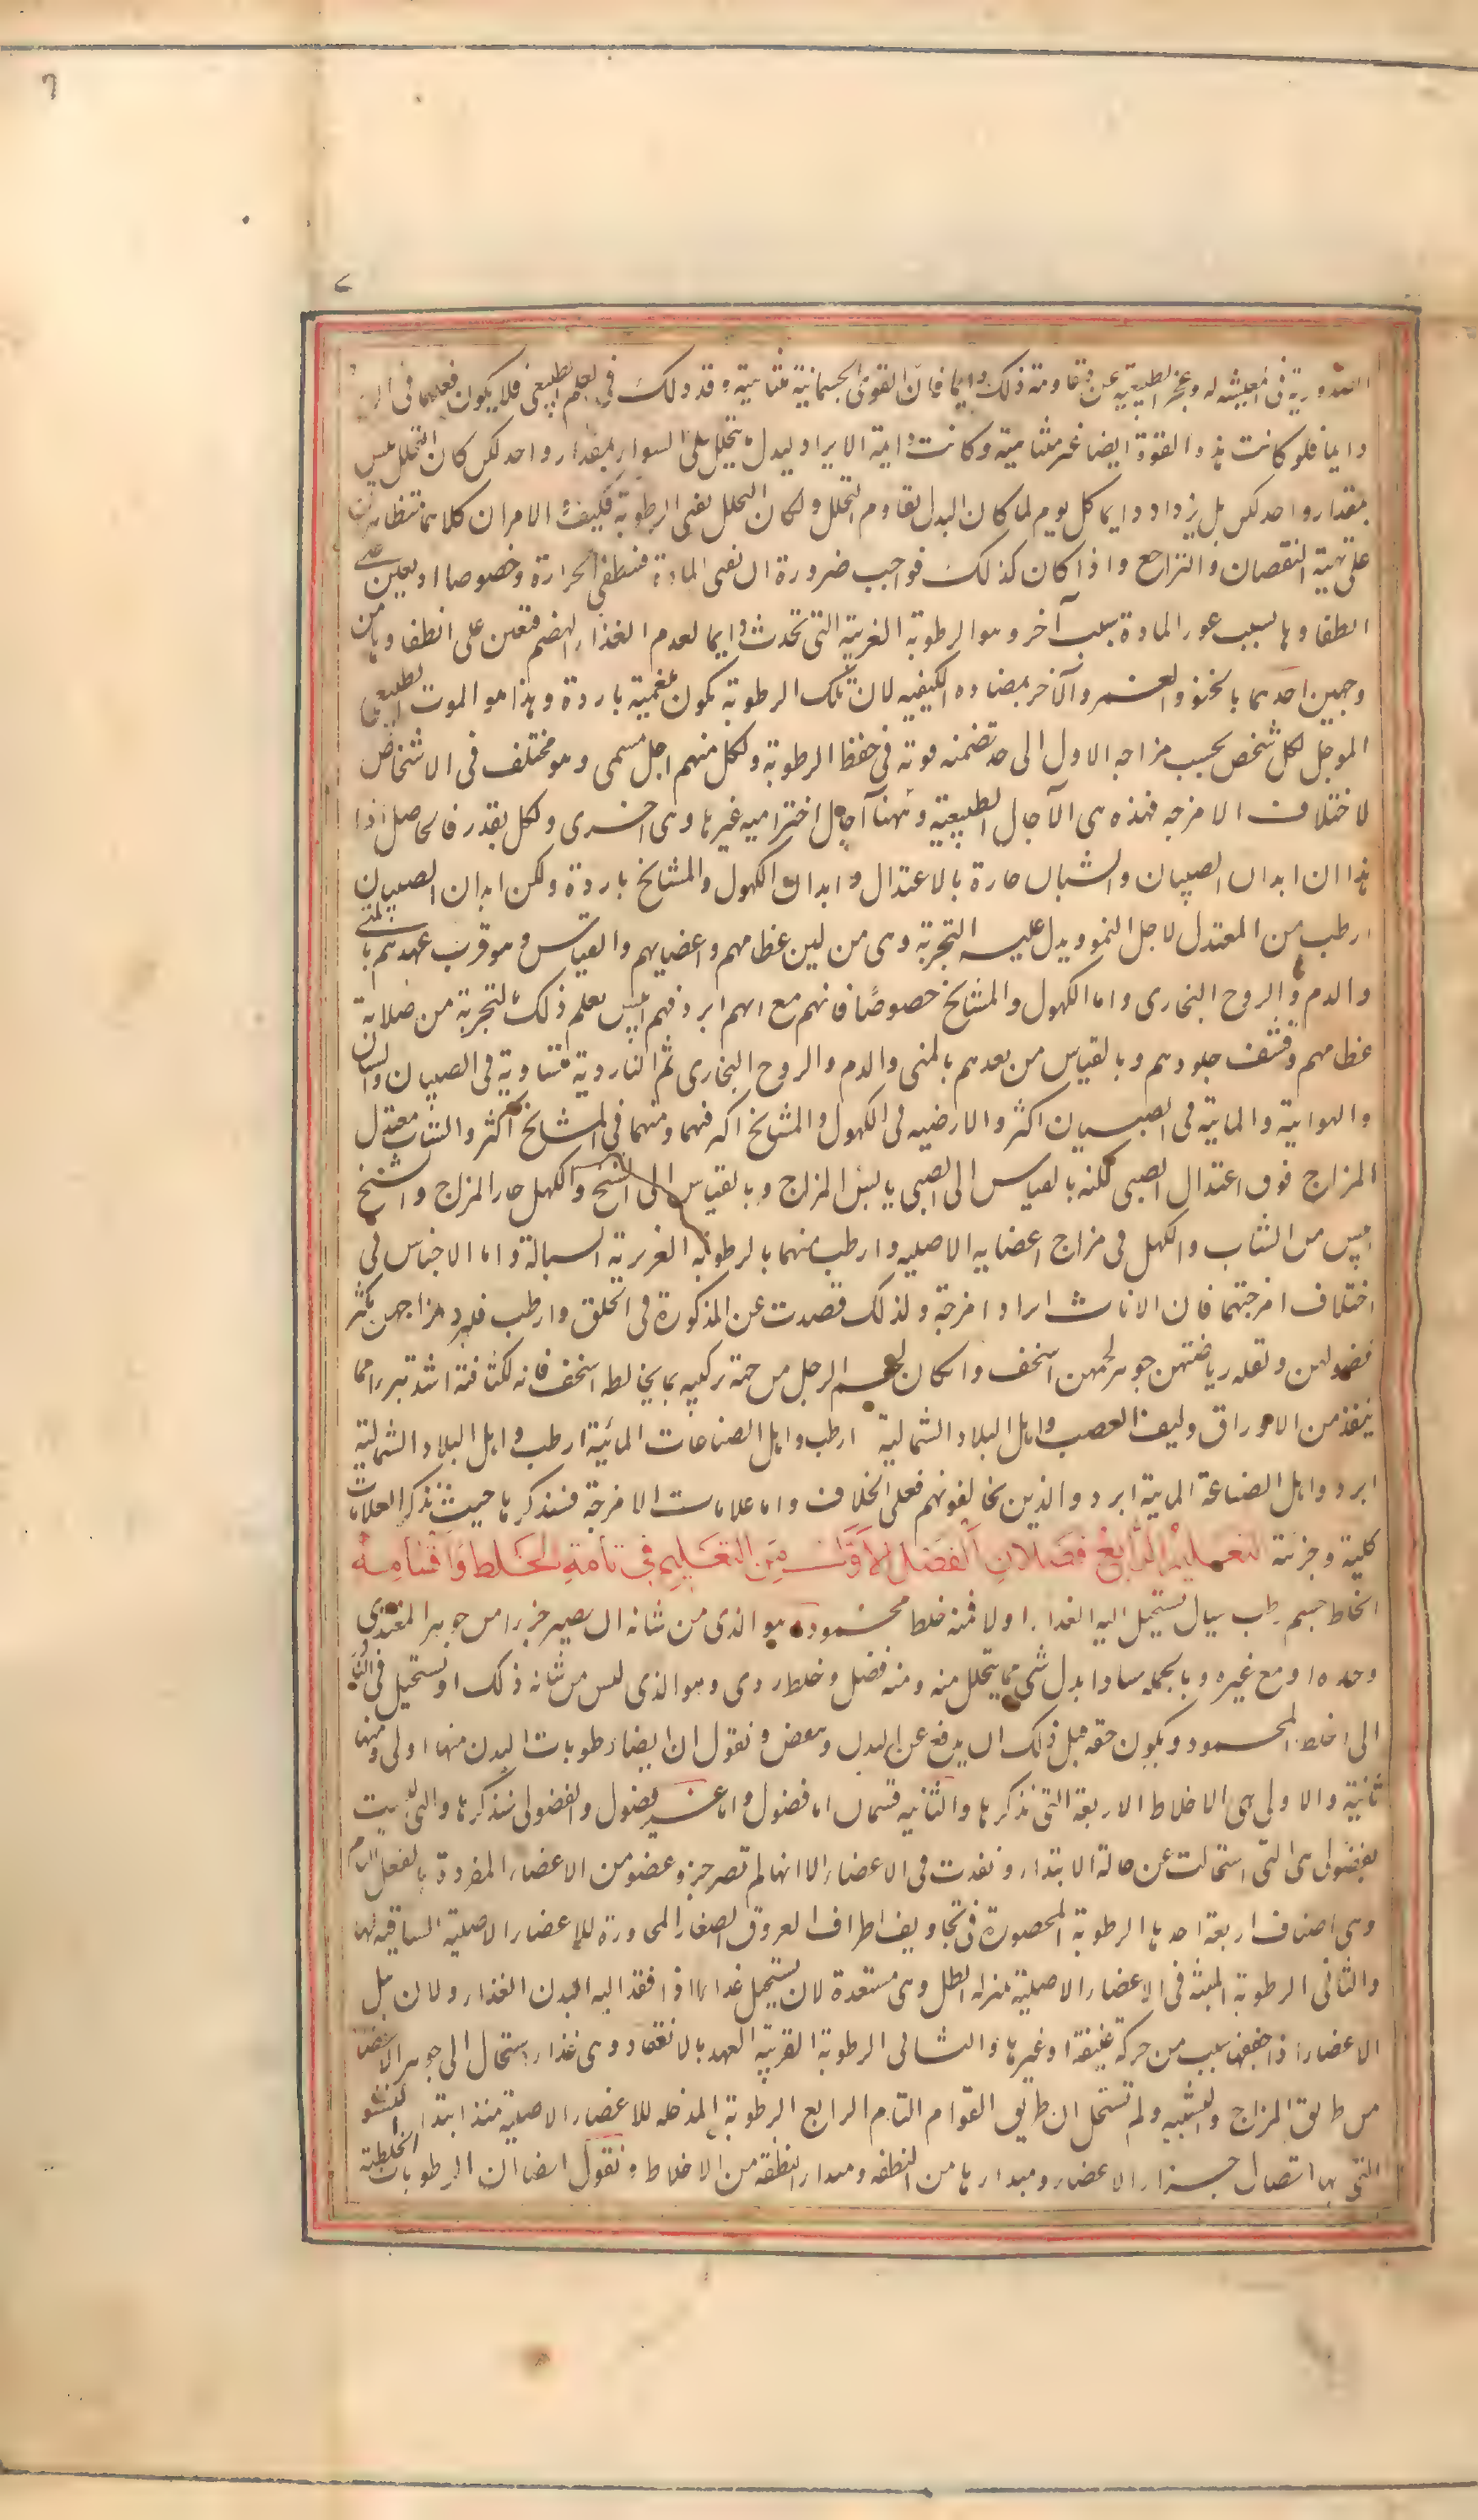 ٦
الضرورية فى المعيشه له وعجز الطبيعية عن مقاومة ذلك دايما فان القوى الجسمانية متناهية وقد ذلك فى العلم الطبيعى فلا يكون فعلها فى
دايما فلو كانت هذه القوة ايضا غير متناهية وكانت دايمة الايراد لبدل ما يتحلل على السواء بمقدار واحد لكن كان التحلل ليس
بمقدار واحد لكن بل يزداد دايما كل يوم لما كان البدل يقاوم التحلل ولكان التحلل يفنى الرطوبة فكيف الامران كلاهما متظاهران
على تهية النقصان والتراجع واذا كان كذلك فواجب ضرورة ان تفنى المادة فتنطفى الحرارة وخصوصا اذ يعين على
انطفاوها بسبب عوز المادة سبب آخر وهو الرطوبة الغريبة التى تحدث دايما لعدم الغذاء الهضم فتعين على انطفاوها من
وجهين احدهما بالخنق والغمر والآخر بمضاده الكيفيه لان تلك الرطوبة تكون بلغمية باردة وهذا هو الموت الطبيعى
الموجل لكل شخص بحسب مزاجه الاول الى حد تضمنه قوته فى حفظ الرطوبة ولكل منهم اجل مسمى وهو مختلف فى الاشخاص
لاختلاف الامزجه فهذه هى الآجال الطبيعية وههنا آجال اختراميه غيرها وهى اخرى وكل بقدر فالحاصل اذا
هذا ان ابدان الصبيان والشبان حارة بالاعتدال وابدان الكهول والمشايخ باردة ولكن ابدان الصبيان
ارطب من المعتدل لاجل النمو ويدل عليه التجربة وهى من لين عظامهم واعضايهم والقياس وهو قرب عهدهم بالمنى
والدم والروح البخارى واما الكهول والمشايخ خصوصًا فانهم مع انهم ابرد فهم ايبس يعلم ذلك بالتجربة من صلابة
عظامهم وقشف جلودهم وبالقياس من بعدهم بالمنى والدم والروح البخارى ثم النارية متساوية فى الصبيان والشبان
والهوايية والمايية فى الصبيان اكثر والارضيه فى الكهول والمشايخ اكثر فيهما ومنهما فى المشايخ اكثر والشاب معتدل
المزاج فوق اعتدال الصبى لكنه بالقياس الى الصبى يابس المزاج وبالقياس الى الشيخ والكهل حار المزاج والشيخ
ايبس من الشاب والكهل فى مزاج اعضايه الاصليه وارطب منهما بالرطوبة الغريبة البالة واما الاجناس فى
اختلاف امزجتها فان الاناث ابرد امزجة ولذلك قصرت عن المذكورة فى الخلق وارطب فلبرد مزاجهن يكثر
فضولهن ولقله رياضتهن جوهر لحمهن اسخف وان كان لحم الرجل من جهة تركيبه بما يخالطه اسخف فانه لكثافته اشد تبررا مما
ينفذ من الاوراق وليف العصب واهل البلاد الشمالية ارطب واهل الصناعات المائية ارطب واهل البلاد الشمالية
ابرد واهل الصناعة المايية ابرد والذين يخالفونهم فعلى الخلاف واما علامات الامزجة فسنذكرها حيث نذكر العلامات
كلية وجزئية التعليم الرابع فصلان الفصل الاول من التعليم فى مآهية الخلط واقسامه
الخلط جسم رطب سيال يستحيل اليه الغذاء اولا فمنه خلط محمود وهو الذى من شانه ان يصير جزءا من جوهر المغتذى
وحده او مع غيره وبالجمله سادا بدل شى مما يتحلل منه ومنه فضل وخلط ردى وهو الذى ليس من شانه ذلك او يستحيل فى النا
الى الخلط المحمود ويكون حقه قبل ذلك ان يدفع عن البدن وينفض ونقول ان ايضا رطوبات البدن منها اولى ومنها
ثانية والاولى هى الاخلاط الاربعة التى نذكرها والثانيه قسمان اما فضول واما غير فضول والفضولى سنذكرها والتى ليست
بفضولى هى التى استحالت عن حالة الابتداء ونفذت فى الاعضاء الا انها لم تصر جزو عضو من الاعضاء المفردة بالفعل التام
وهى اصناف اربعة احدها الرطوبة المحصورة فى تجاويف اطراف العروق الصغار المجاورة للاعضاء الاصلية الساقيه لها
والثانى الرطوبة المنبثه فى الاعضاء الاصلية منزلة الطل وهى مستعدة لان يستحيل غذاء اذا فقد اليه البدن الغذاء ولان بل
الاعضاء اذا جففها سبب من حركة عنيفة او غيرها والثالث الرطوبة القريبه العهد بالانعقاد وهى غذاء استحال الى جوهر الاعضا
من طريق المزاج والتشبيه ولم تستحل ان طريق القوام التام الرابع الرطوبة المداخله للاعضاء الاصلية منذ ابتداء النشو
التى بها اتصال جزاء الاعضاء ومبداءها من النطفه ومبداء النطفة من الاخلاط ونقول ايضا ان الرطوبات الخلطية